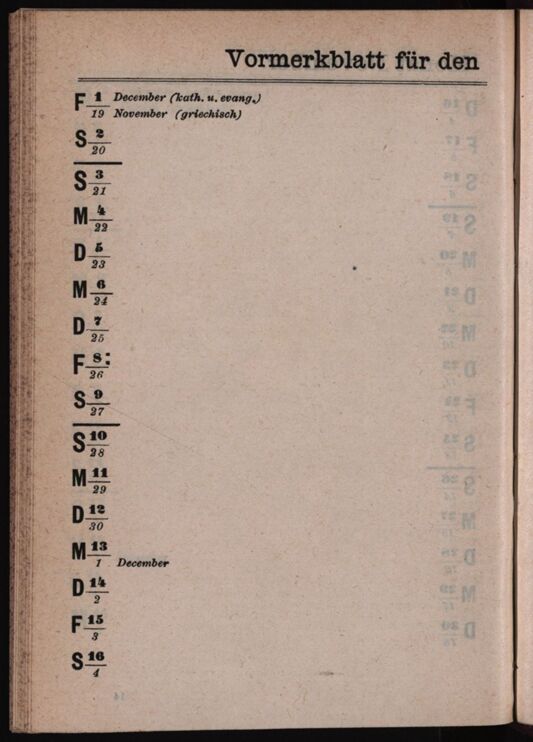 Vormerkblatt für den
F 1 December (kath. u. evang.)
19 November (griechisch)
S 2
20
S 3
21
M 4
22
D 5
23
M 6
24
D 7
25
F 8:
26
S 9
27
S 10
28
M 11
29
D 12
30
M 13
1 December
D 14
2
F 15
3
S 16
4